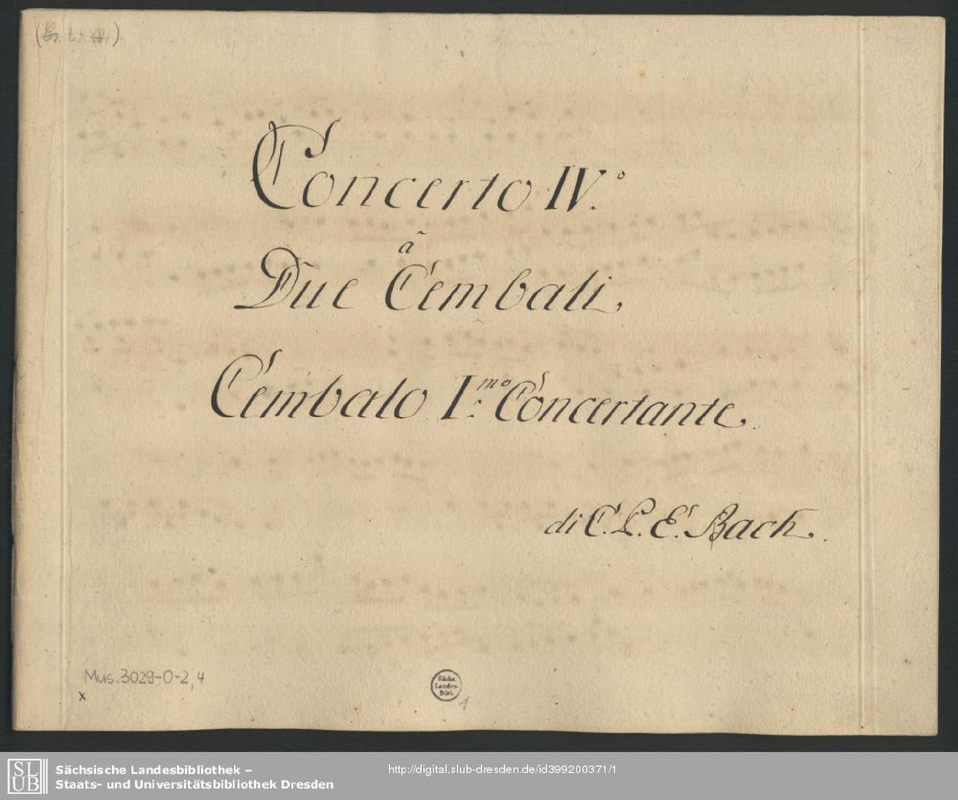 Concerto IV.o
â
Due Cembali,
Cembalo I.mo Concertante.
di C. P. E. Bach.
Mus. 3029-O-2,4
x
Sächs.
Landes-
Bibl.
1
SLUB
Sächsische Landesbibliothek –
Staats- und Universitätsbibliothek Dresden
http://digital.slub-dresden.de/id399200371/1